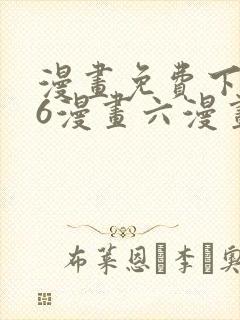 漫畫免費下
6漫畫六漫畫
布萊恩·李·奧